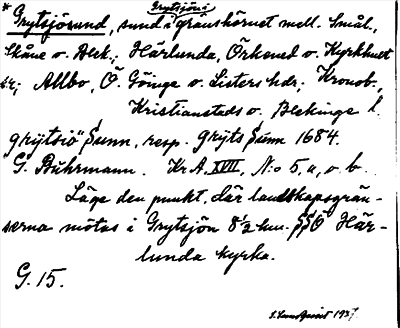 * Grytsjösund, sund i gränshörnet mell. Smål.,
Grytsjön i
Skåne o. Blek.; Härlunda, Örkened o. Kyrkhult
sr; Allbo, Ö. Göinge o. Listers hdr; Kronob.,
Kristianstads o. Blekinge l.
grÿtsiö" Sunn, resp. grÿts Sunn 1684.
G. Buhrmann. Kr.A. XVII, N:o 5, a, o. b.
Läge den punkt, där landskapsgrän-
serna mötas i Grytsjön 8 1/2 km. SSÖ Här-
lunda kyrka.
G. 15.
1937.